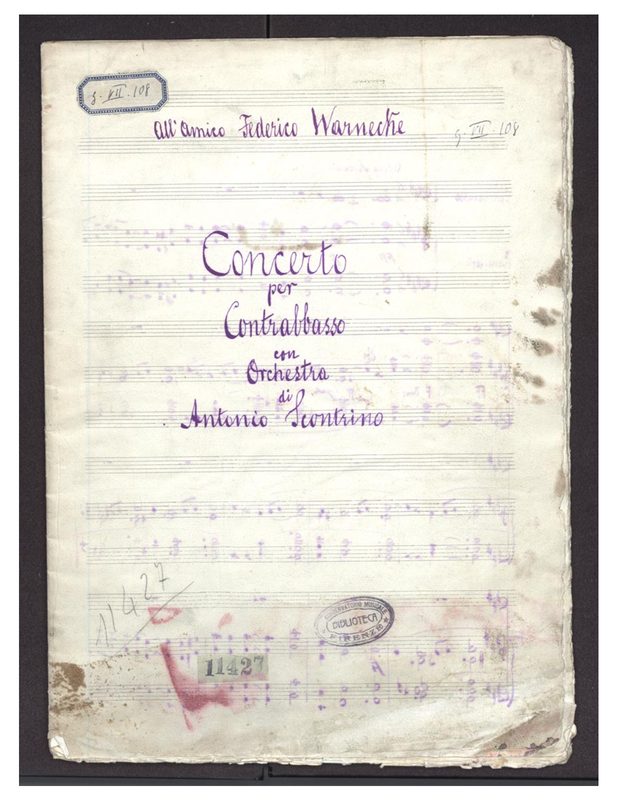 g. VII. 108
all'amico Federico Warnecke
g. VII. 108
Concerto
per
Contrabbasso
con
Orchestra
di
Antonio Scontrino
11427
CONSERVATORIO MUSICALE
BIBLIOTECA
FIRENZE
11427